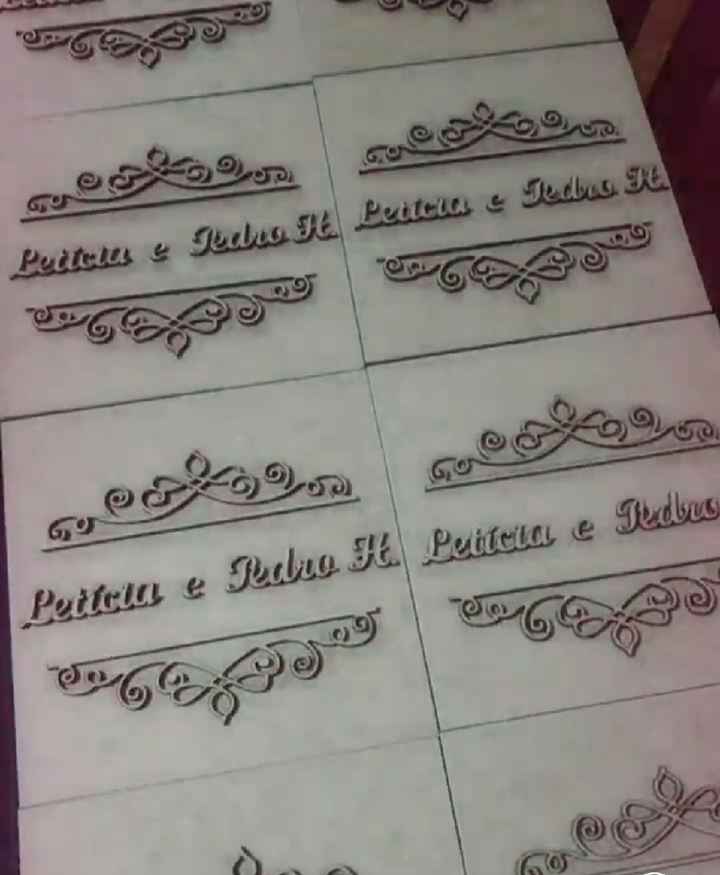 Letícia e Pedro H.
Letícia e Pedro H.
Letícia e Pedro H.
Letícia e Pedro